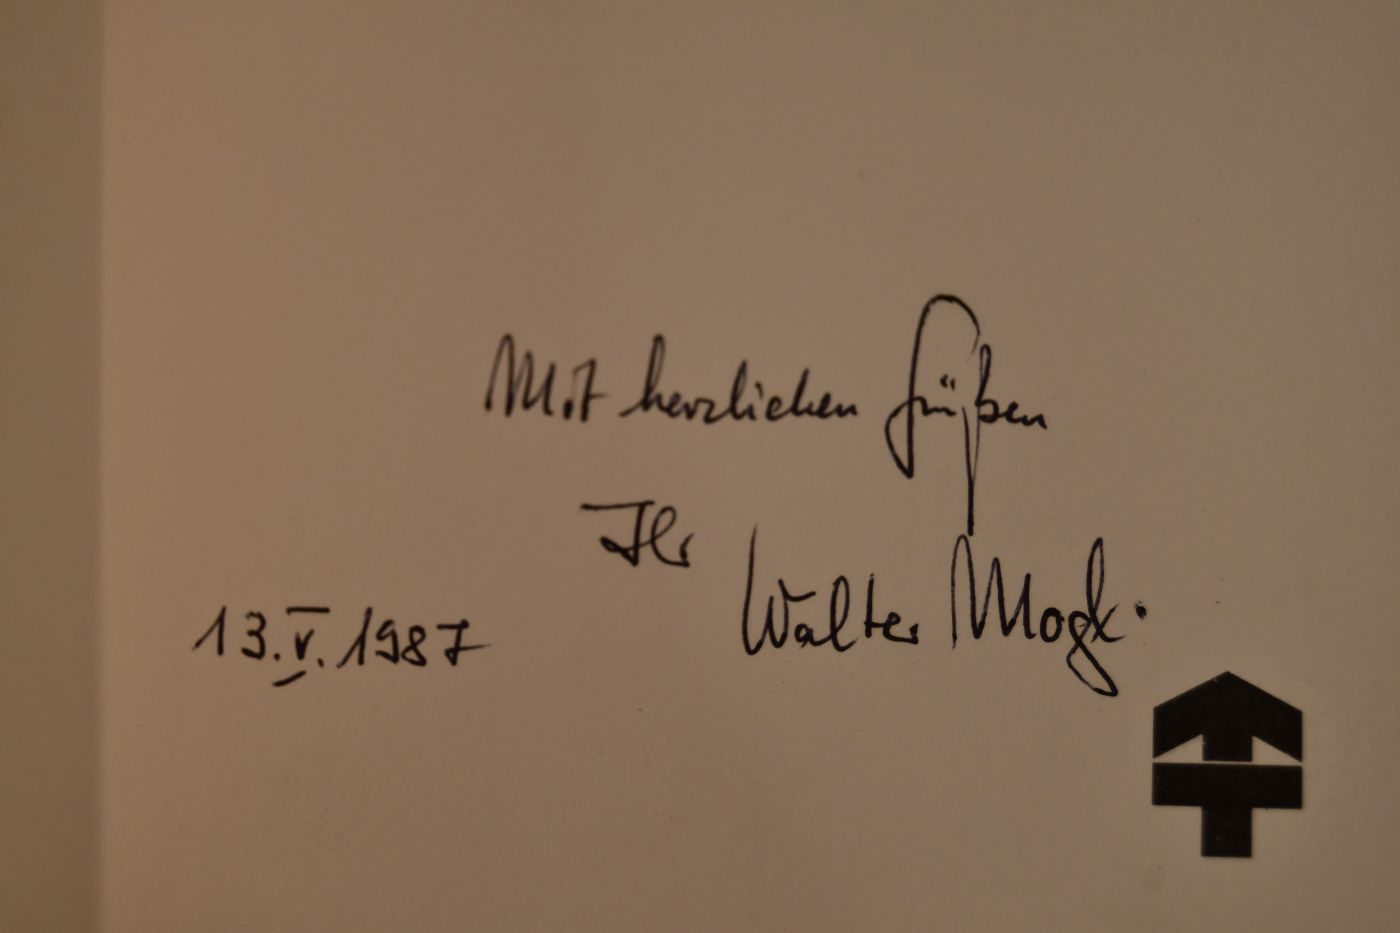 Mit herzlichen Grüßen
Ihr
Walter Mogk.
13.V.1987